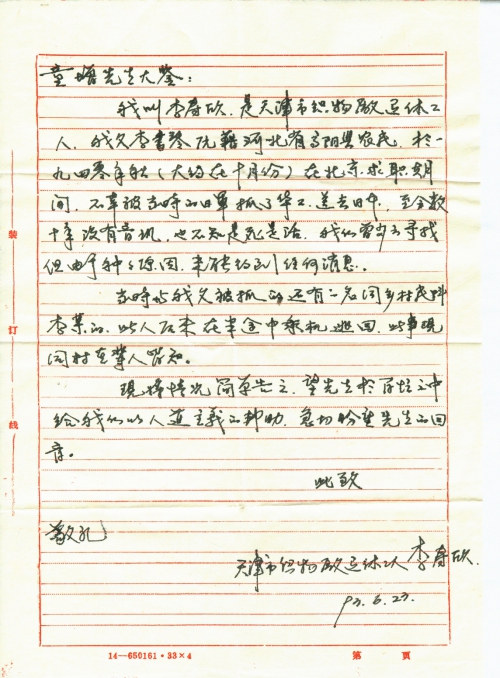 童增先生大鉴：
我叫李春欣，是天津市织物厰退休工
人，我父李书琴阮籍河北省高阳县农民，於一
九四零年秋（大约在十月份）在北京求职期
间，不幸被当时的日军抓了华工送去日本，至今数
十年没有音讯，也不知是死是活，我们曾多方寻找
但由于种种原因，未能得到任何消息。
当时与我父被抓的还有一名同乡村民叫
李某的，此人后来在半途中乘机逃回，此事现
同村在辈人皆知。
现将情况简单告之，望先生於百忙之中
给我们以人道主义的帮助，急切盼望先生的回
音。
此致
敬礼
天津市织物厰退休工人 李春欣
93.6.23.
装
订
线
14—650161·33×4
第 页